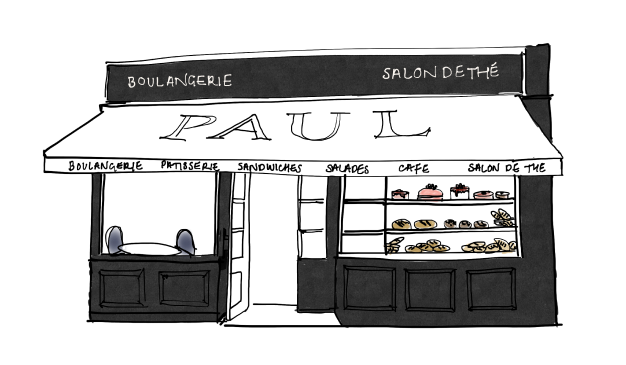 BOULANGERIE SALON DE THÉ
PAUL
BOULANGERIE PATISSERIE SANDWICHES SALADES CAFE SALON DE THE